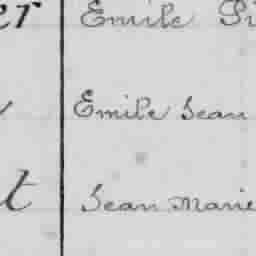 er Emile Pi
Emile Jean
t Jean Marie